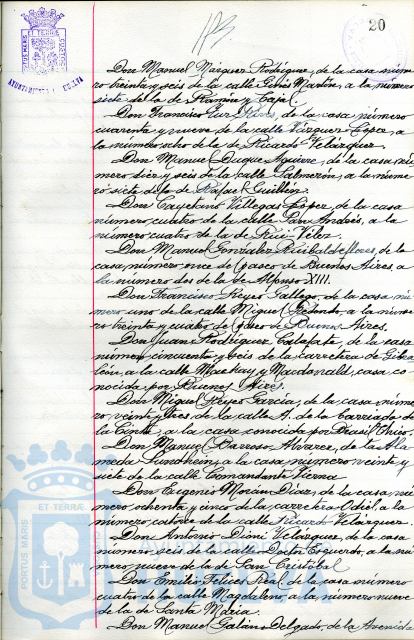 20
PORTUS MARIS ET TERRÆ CUSTOS
AYUNTAMIENTO
Don Manuel Márquez Rodríguez, de la casa núme-
ro treinta y seis de la calle Ginés Martín, a la número
siete de la de Ramón y Cajal.
Don Francisco de la casa número
cuarenta y nueve de la calle Vázquez López, a
la número ocho de la de Ricardo Velázquez.
Don Manuel Duque Aguirre, de la casa nú-
mero diez y seis de la calle Salmerón, a la núme-
ro siete dpdo. de Rafael Guillén.
Don Cayetano Villegas López, de la casa
número cuatro de la calle San Andrés, a la
número cuatro de la de Rui-Vélez.
Don Manuel González de la
casa número once de paseo de Buenos Aires a
la número dos de la de Alfonso XIII.
Don Francisco Reyes Gallego, de la casa nú-
mero uno de la calle Miguel Redondo, a la núme-
ro treinta y cuatro de paseo de Buenos Aires.
Don Juan Rodríguez Calafate, de la casa
número cincuenta y seis de la carretera de Gibra-
león, a la calle Mackay y Macdonald, casa co-
nocida por Buenos Aires.
Don Miguel Reyes García, de la casa núme-
ro veinte y tres de la calle A. de la Barriada de
la Cinta a la casa conocida por Brasil Chico.
Don Manuel Barroso Álvarez, de la Ala-
meda Sundheim, a la casa número veinte y
siete de la calle Comandante Vierna
Don Eugenio Morán Díaz, de la casa nú-
mero ochenta y cinco de la carretera Odiel, a la
número catorce de la calle Ricardo Velázquez.
Don Antonio Velázquez, de la casa
número seis de la calle Doctor Esquerdo, a la nú-
mero nueve de la de San Cristóbal
Don Emilio Felices Real, de la casa número
cuatro de la calle Magdalena, a la número nueve
de la de Santa María.
Don Manuel Galiano Delgado, de la Avenida
PORTUS MARIS ET TERRÆ